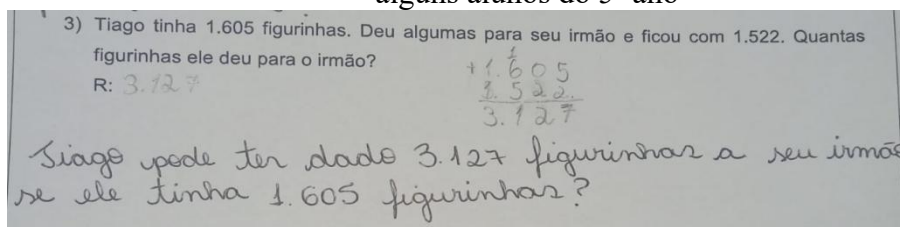 alguns alunos do 5º ano
3) Tiago tinha 1.605 figurinhas. Deu algumas para seu irmão e ficou com 1.522. Quantas
figurinhas ele deu para o irmão?
R: 3.127
1
+ 1.605
1.522
3.127
Tiago pode ter dado 3.127 figurinhas a seu irmão
se ele tinha 1.605 figurinhas?